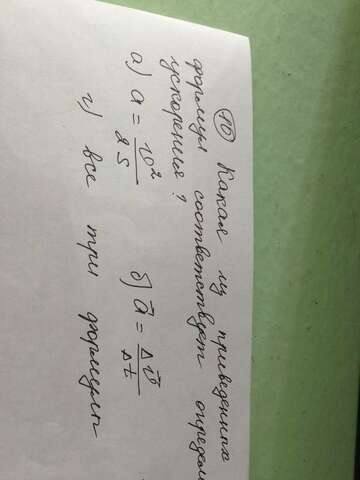 10 Какая из приведенных
формул соответствует опредем
ускорения?
а) a = υ²/2S б) a⃗ = Δυ⃗/Δt
г) все три формулы